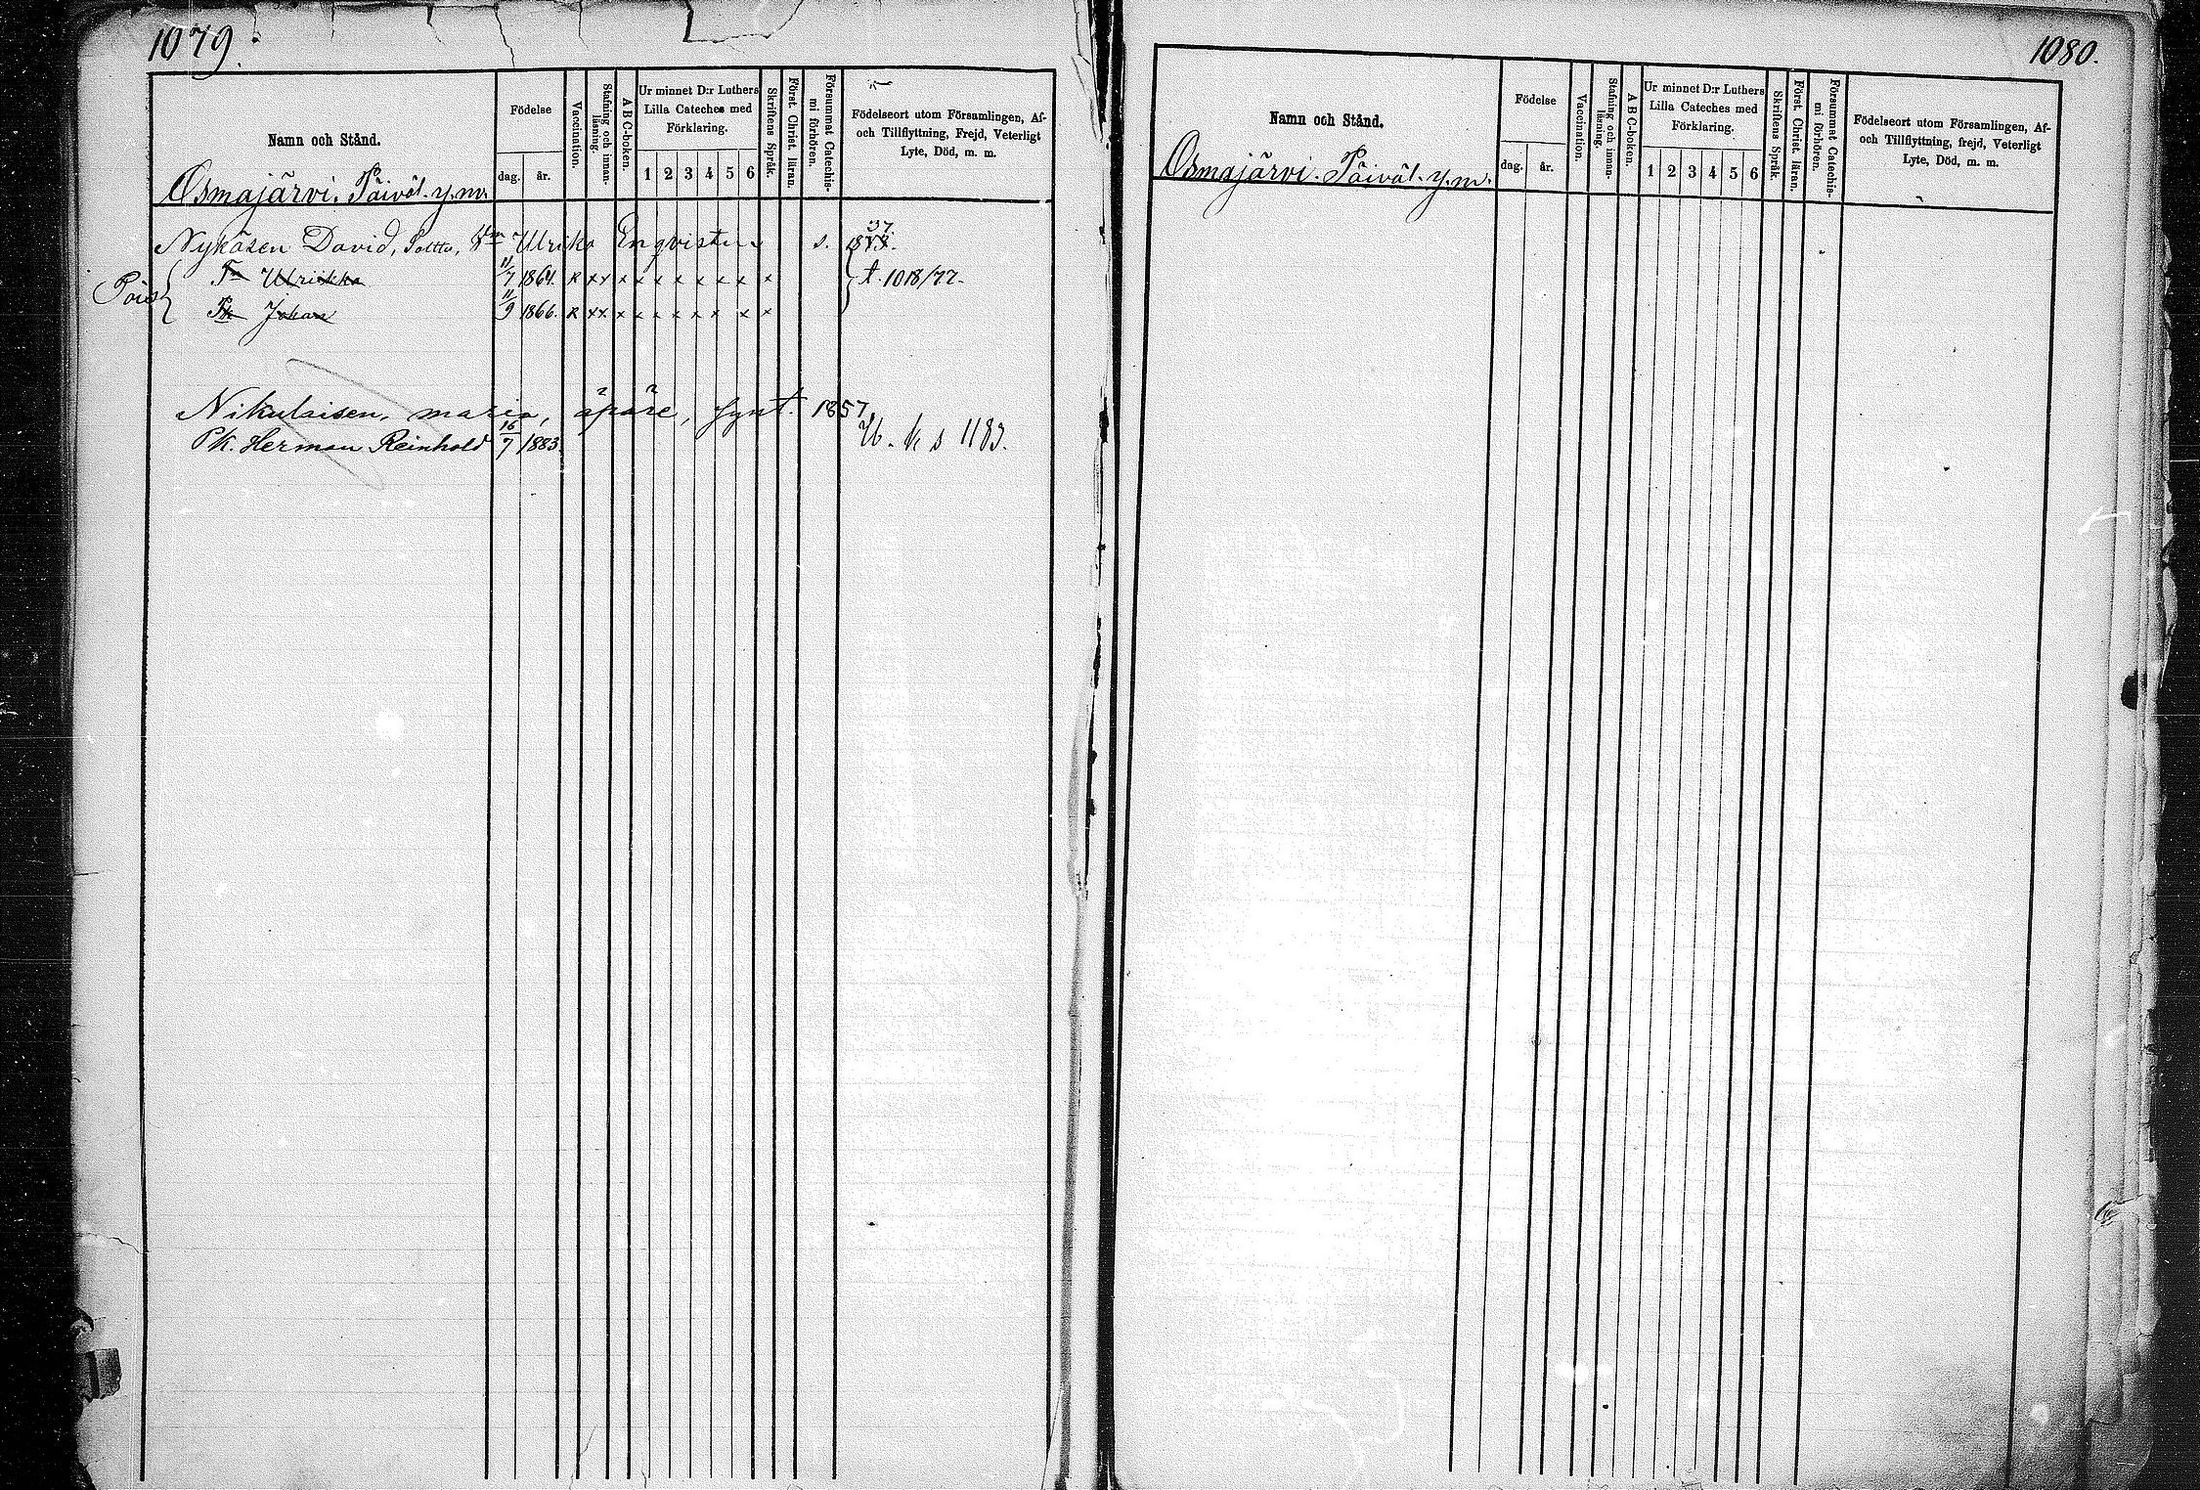 1079.
Namn och Stånd.
Födelse
dag.
år.
Vaccination.
Stafning och innan-
läsning.
A B C-boken.
Ur minnet D:r Luthers
Lilla Cateches med
Förklaring.
1 2 3 4 5 6
Skriftens Språk.
Först. Christ. läran.
Försummat Catechis-
mi förhören.
Födelseort utom Församlingen, Af-
och Tillflyttning, Frejd, Veterligt
Lyte, Död, m. m.
Osmajärvi. Päiväl. y.m.
Nykäsen David, Poltto, Ulrika Enqvistin s. 37.
Pois Tr Ulriikka 11/7 1864. R xx x x x x x x x x t. 1018/77.
Pk Johan 11/9 1866. R xx x x x x x x x x
Nikulaisen, maria, äpäre, synt. 1857
Pk. Herman Reinhold 16/7 1883. k s 1183.
1080.
Namn och Stånd.
Födelse
dag.
år.
Vaccination.
Stafning och innan-
läsning.
A B C-boken.
Ur minnet D:r Luthers
Lilla Cateches med
Förklaring.
1 2 3 4 5 6
Skriftens Språk.
Först. Christ. läran.
Försummat Catechis-
mi förhören.
Födelseort utom Församlingen, Af-
och Tillflyttning, frejd, Veterligt
Lyte, Död, m. m.
Osmajärvi. Päiväl. y.m.